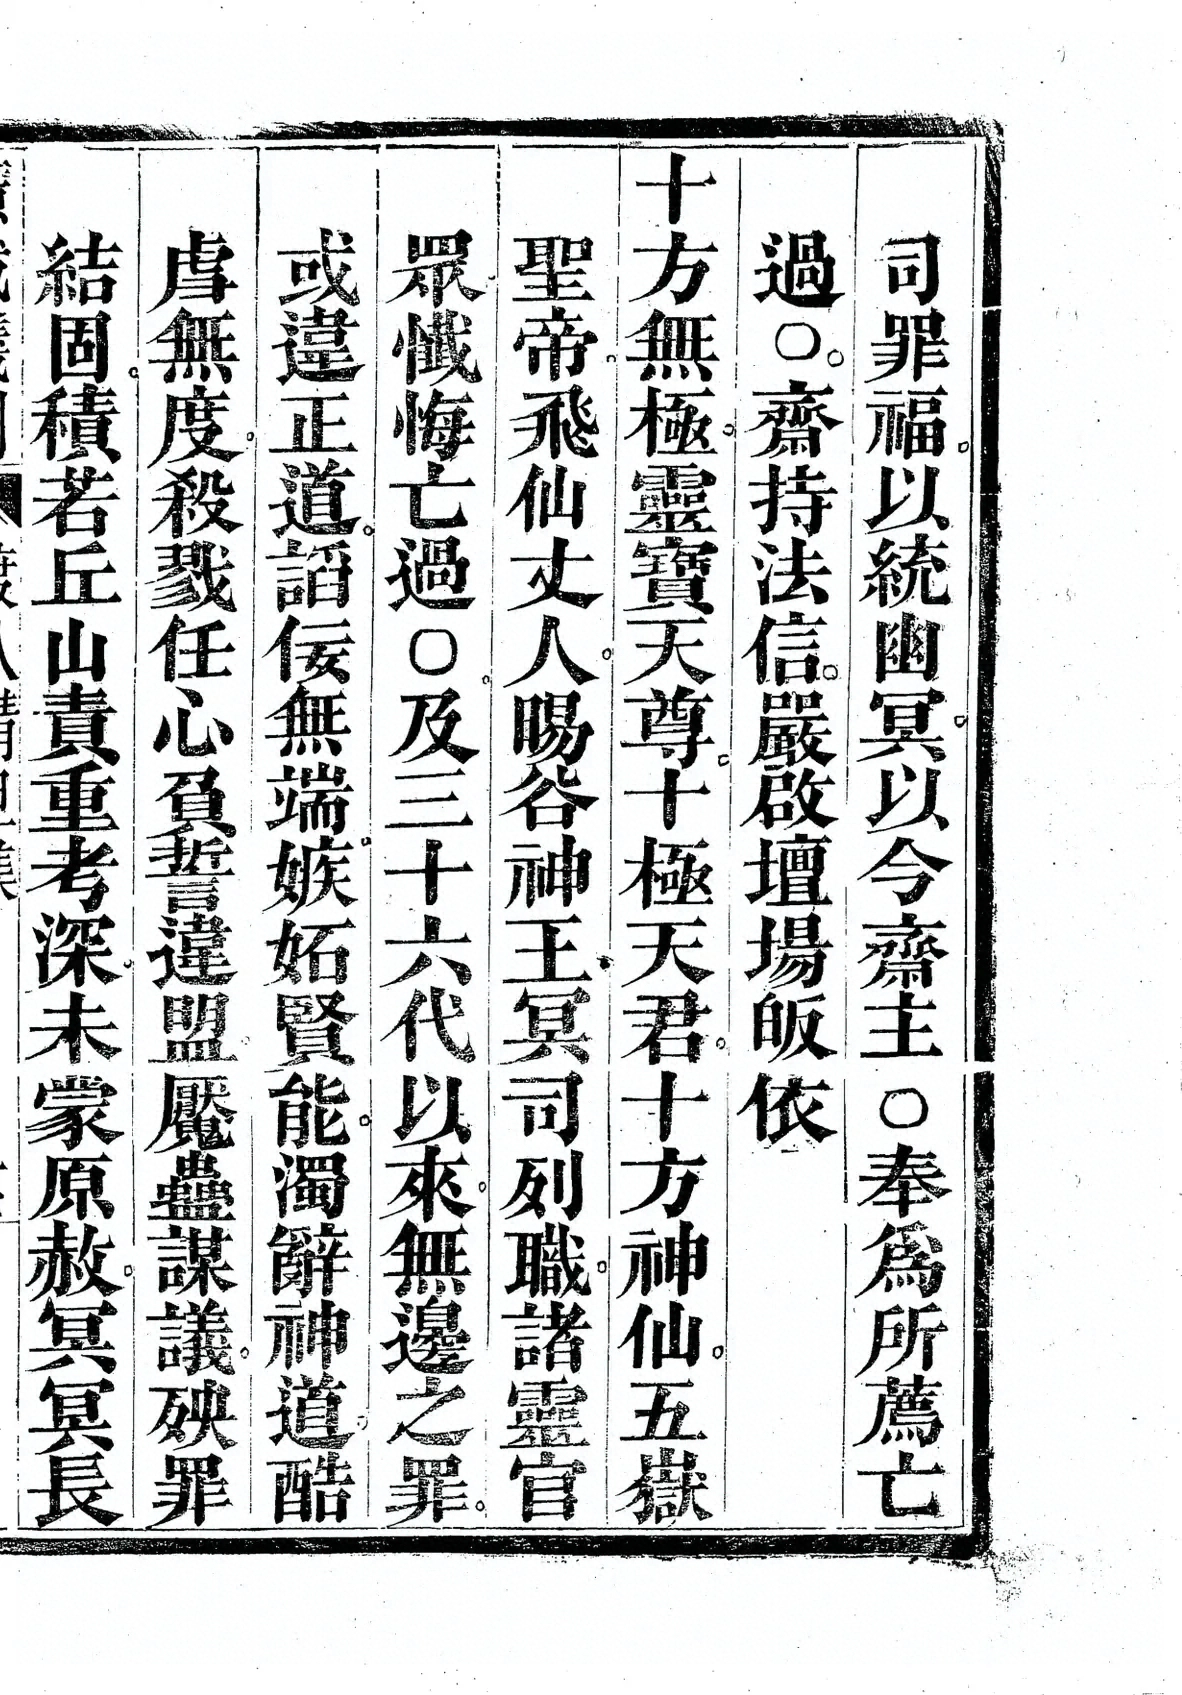 司罪福。以統幽冥。以今齋主○奉爲所薦亡
過○。齋持法信。嚴啟壇場皈依
十方無極。靈寶天尊。十極天君。十方神仙。五嶽
聖帝。飛仙丈人。暘谷神王。冥司列職。諸靈官
眾懺悔亡過○。及三十六代以來。無邊之罪。
或違正道。謟佞無端。嫉妬賢能。濁辭神道。酷
虐無度。殺戮任心負誓違盟。魘蠱謀議。殃罪
結固。積若丘山責重考深。未蒙原赦。冥冥長